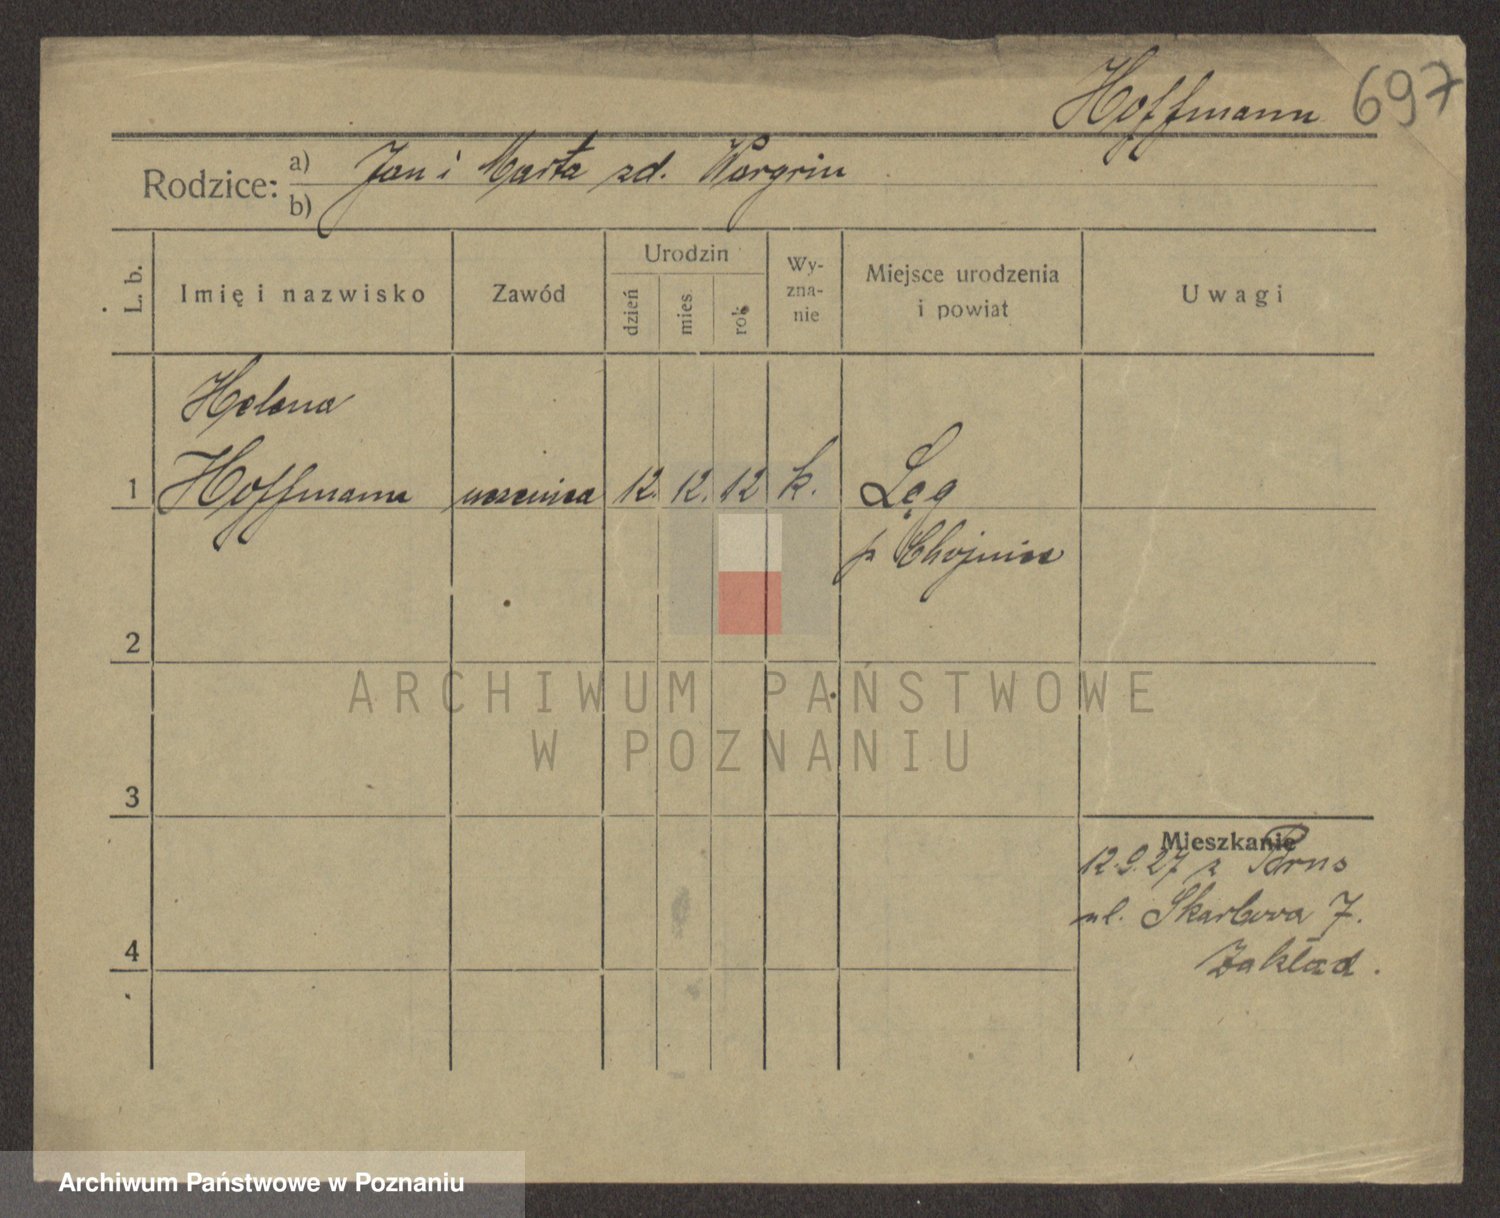 Hoffmann 697
Rodzice: a) Jan i Marta zd. Wergrin
b)
L. b.
Imię i nazwisko
Zawód
Urodzin
dzień
mies
rok
Wy-
zna-
nie
Miejsce urodzenia
i powiat
Uwagi
Helena
1 Hoffmann uczenica 12. 12. 12 k. Łęg
p Chojnice
2
3
4
Mieszkanie
12.9.27 z
ul. Skarbowa 7.
Zakład.
ARCHIWUM PAŃSTWOWE
W POZNANIU
Archiwum Państwowe w Poznaniu